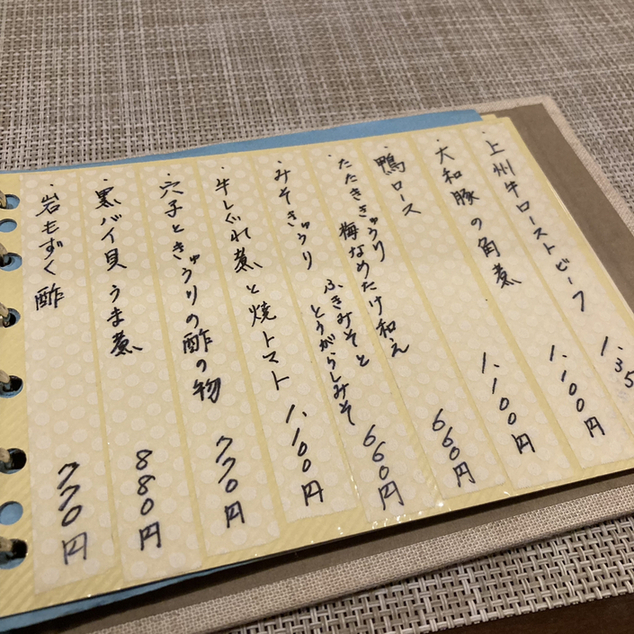 ・上州牛ローストビーフ 1.35
・大和豚の角煮 1.100円
・鴨ロース 1.100円
・たたききゅうり
梅なめたけ和え 660円
・みそきゅうり
ふきみそと
とうがらしみそ 660円
・牛しぐれ煮と焼トマト 1.100円
・穴子ときゅうりの酢の物 770円
・黒バイ貝うま煮 880円
・岩もずく酢 770円